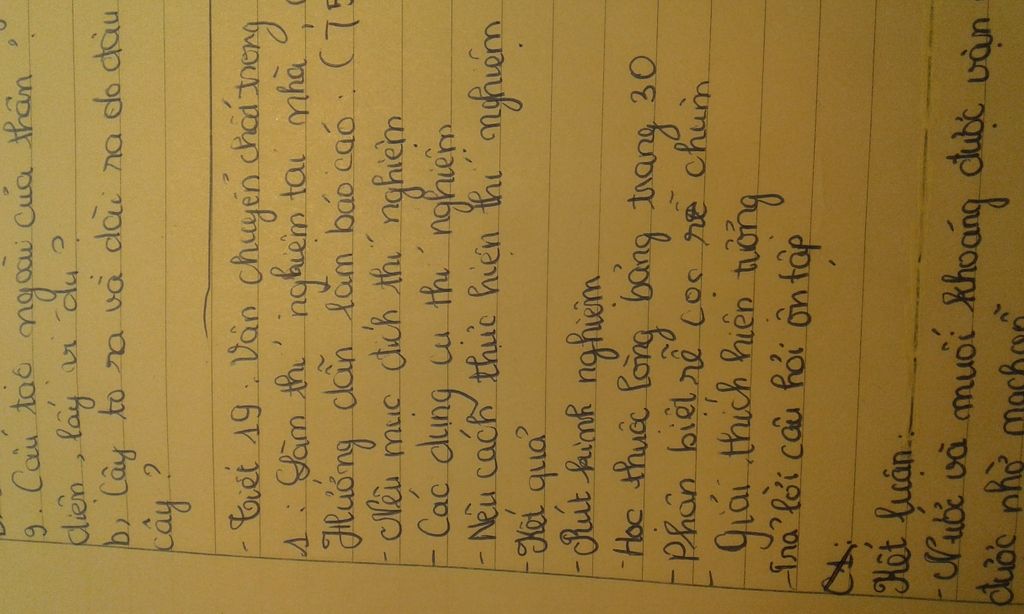 9. Cấu tạo ngoài của thân,
diên, lấy ví dụ?
b, Cây to ra và dài ra do đâu
cây?
- Tiết 19: Vận chuyển chất trong
1: Làm thí nghiệm tại nhà,
Hướng dẫn làm báo cáo: (T5
- Nêu mục đích thí nghiệm
- Các dụng cụ thí nghiệm
- Nêu cách thực hiện thí nghiệm.
- Kết quả
- Rút kinh nghiệm
- Học thuộc lòng bảng trang 30
- Phân biệt rễ cọc rễ chùm
- Giải thích hiện tượng
- Trả lời câu hỏi ôn tập
Kết luận:
- Nước và muối khoáng được vận
được nhờ mạch gỗ